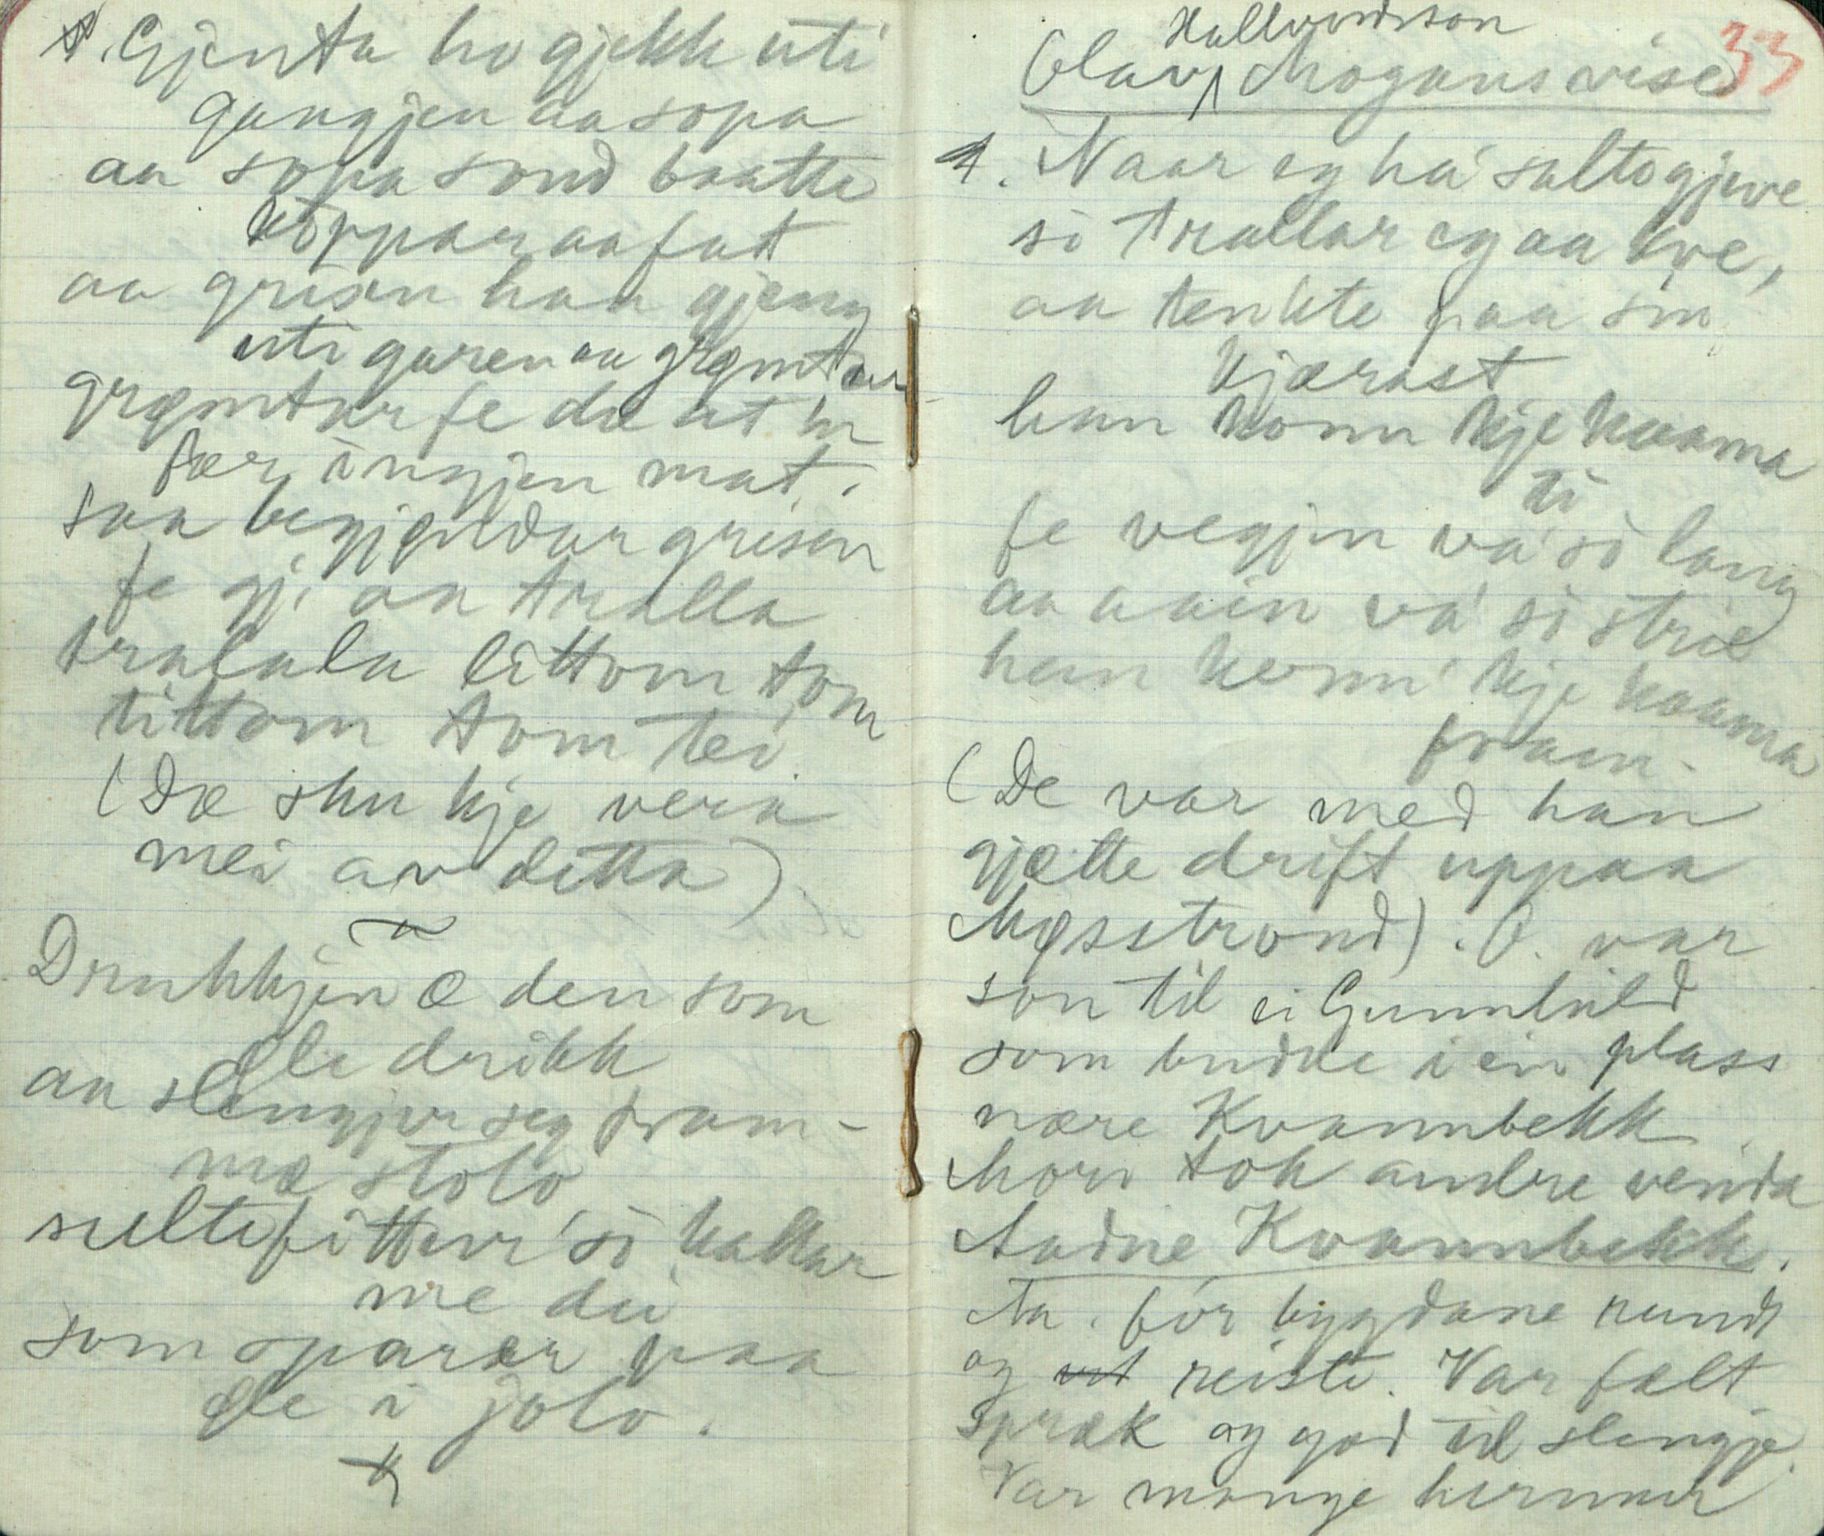 1. Gjenta ho gjekk uti
gangjen aa sopa
aa sopa sond baatte
koppar aa fat
aa grisen han gjeng
uti garen aa grømtar
grømtar fe dæ at 'n
fær ingjen mat.
Saa begjøndar grisen
fe gj. aa tralla
tralala littom tom
tittom tom tei.
(Dæ sku kje vera
mei av detta)
Drukkjen æ den som
øle drikk
aa slengjer seg fram-
mæ stolo
sultefitter' så kallar
me dei
som sparer paa
øle i jolo.
Hallvordson
Olav Mogans vise 33
1. Naar eg ha' salt o gjeve
så trallar eg aa kve,
aa tenkte paa sin
kjærast
han konn' kje kaama
ti
fe vegjen va' så lang
aa aain va' så strie
han konn' kje kaama
fram.
(De var med han
gjætte drift uppaa
Møsstrond). O. var
son til ei Gunnhild
som budde i ein plass
nære Kvannbekk
Mori tok andre venda
Aadne Kvannbekk.
Aa. fór bygdane rundt
og ut reiste. Var fælt
spræk og god til slengje.
Var mange hermur